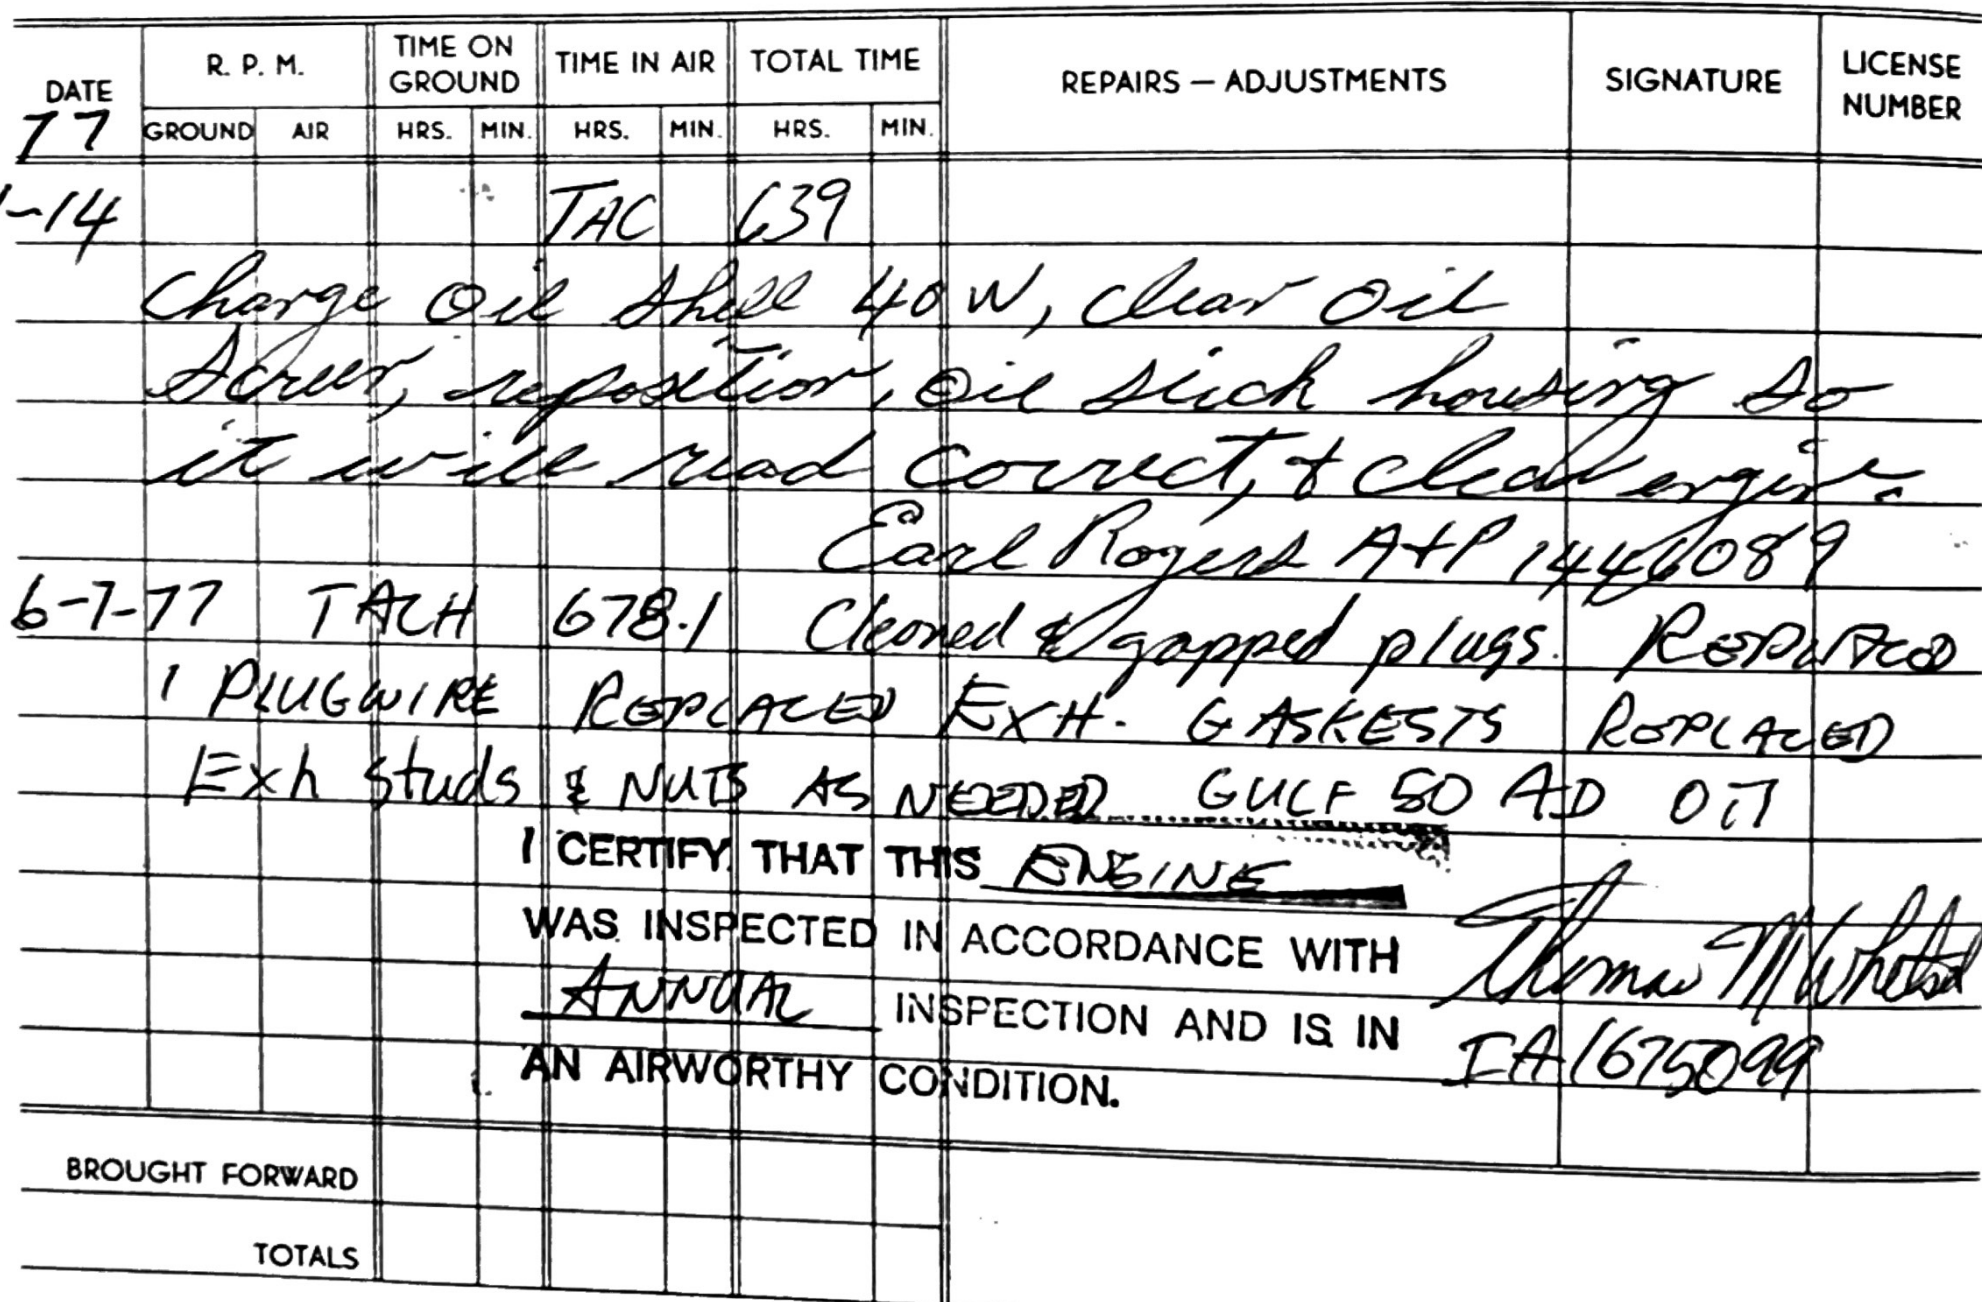 DATE R. P. M. TIME ON GROUND TIME IN AIR TOTAL TIME REPAIRS — ADJUSTMENTS SIGNATURE LICENSE NUMBER
77 GROUND AIR HRS. MIN. HRS. MIN. HRS. MIN.
-14 TAC 639
Change Oil Shell 40 W, clean oil
screen, reposition, oil stick housing so
it will read correct, + clean engine.
Earl Rogers A+P 1446089
6-7-77 TACH 678.1 Cleaned & gapped plugs. REPLACED
1 PLUGWIRE REPLACED EXH. GASKESTS REPLACED
Exh studs & NUTS AS NEEDED GULF 50 AD Oil
I CERTIFY THAT THIS ENGINE
WAS INSPECTED IN ACCORDANCE WITH
ANNUAL INSPECTION AND IS IN
AN AIRWORTHY CONDITION.
Thomas M
IA 1675099
BROUGHT FORWARD
TOTALS